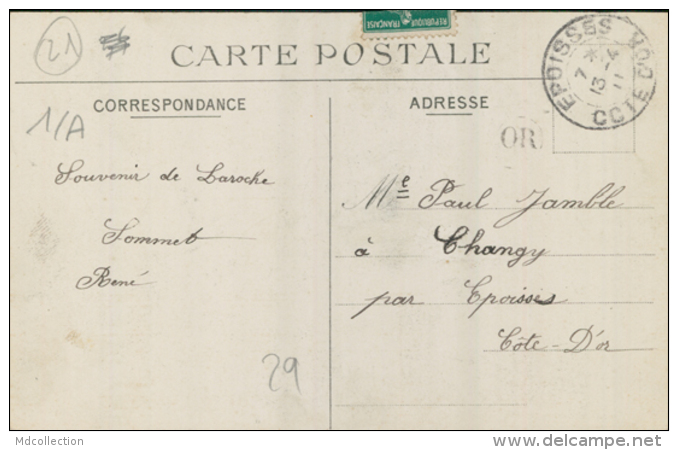 21
REPUBLIQUE FRANÇAISE
CARTE POSTALE
EPOISSES COTE D'OR
7 *
13 - 4
11
CORRESPONDANCE
ADRESSE
1/A
OR
Souvenir de Laroche
Sommet
René
Me Paul Jamble
à Changy
par Epoisses
Côte-D'or
29
Mdcollection
www.delcampe.net